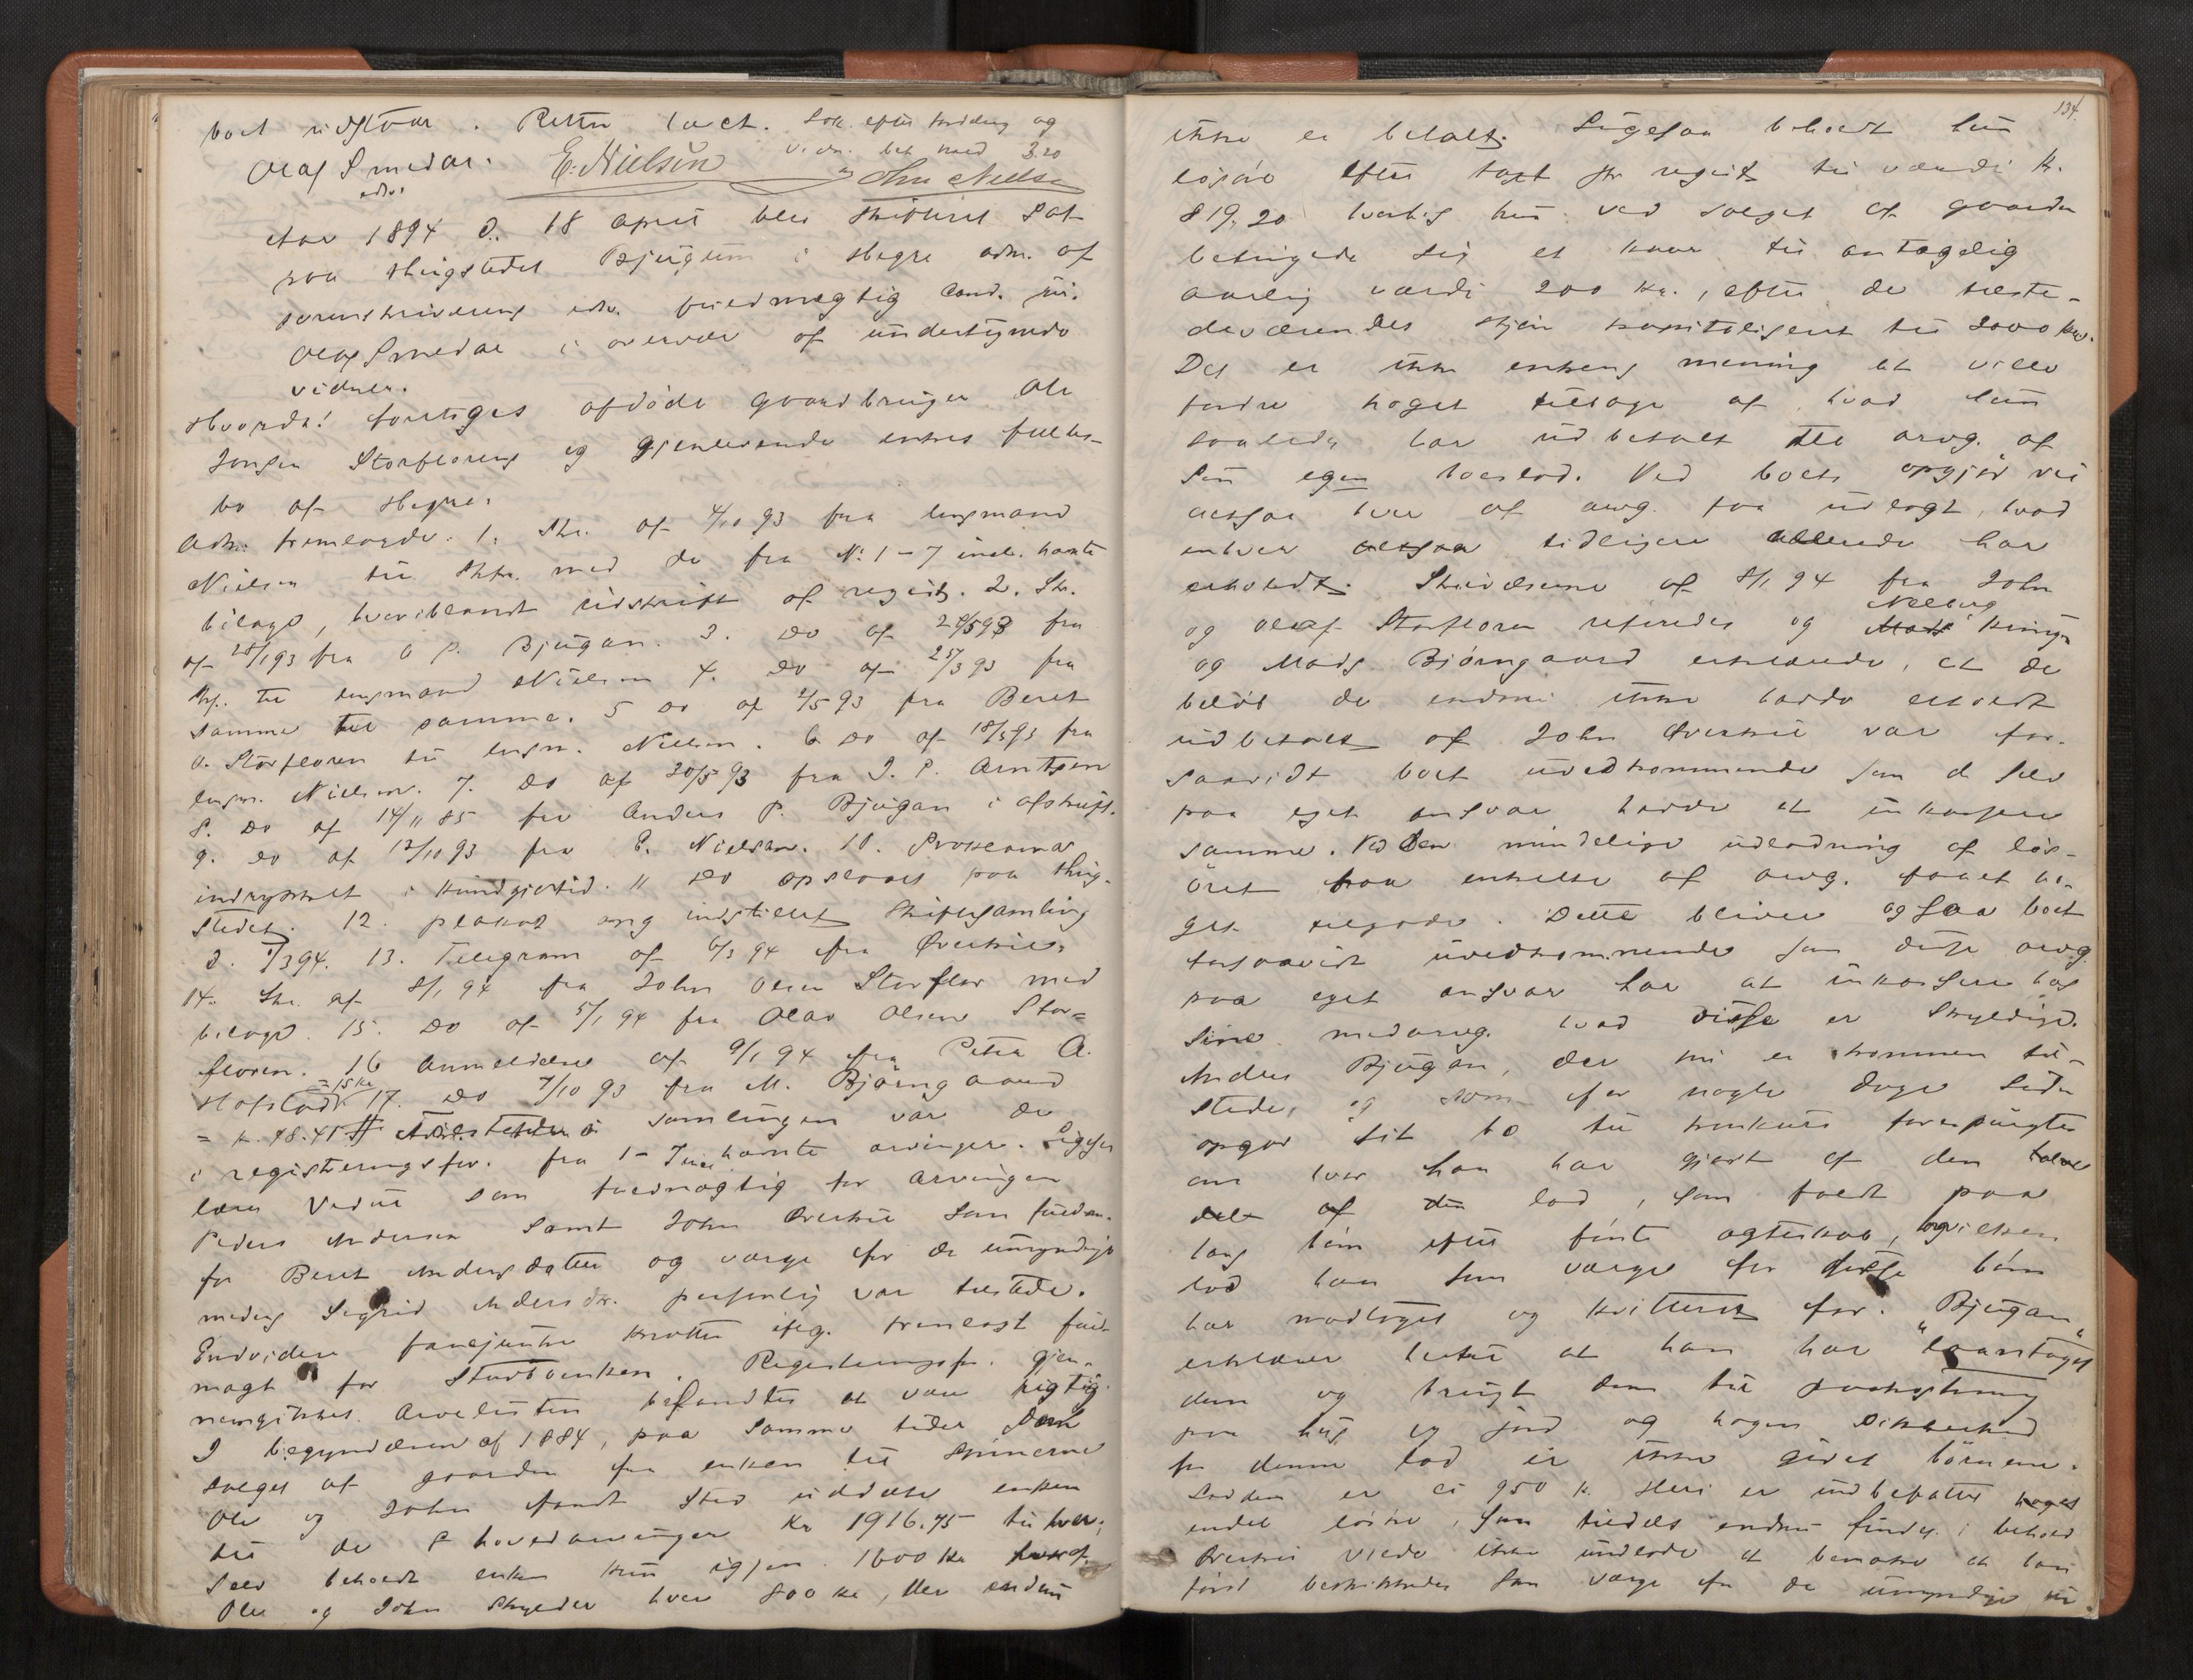 boet vidstaar. Retten hævet.
Olaf Smedar. E. Nielsen Ole Nielsen
edsv.
Aar 1894 d. 18 april blev skifteret sat
paa thingstedet Bjugum i Hegre adm. af
sorenskriverens edsv. fuldmægtig cand. jur.
Olaf Smedar i overvær af undertegnede
vidner.
Hvorda! foretoges afdøde gaardbruger Ole
Jonsen Storflorens og gjenlevende enkes fælles-
bo af Hegre.
Adm. fremlagde: 1. Skr. af 4/10 93 fra lensmand
Nielsen til Skfr. med de fra No 1 - 7 incl. hæfte
bilage, hvoriblandt udskrift af registr. 2. Skr.
af 28/1 93 fra O P. Bjugan. 3. Do af 29/5 93 fra
Skfr. til lensmand Nielsen 4. Do af 25/3 93 fra
samme til samme. 5 Do af 2/5 93 fra Beret
O. Storfloren til lensm. Nielsen. 6 Do af 18/5 93 fra
lensm. Nielsen. 7. Do af 30/5 93 fra J. P. Arntzen
8. Do af 14/11 85 fra Anders P. Bjugan i afskrift.
9. Do af 12/10 93 fra E. Nielsen. 10. Proklama
indrykket i Kundgjørtid. 11 Do opslaaet paa thing-
stedet. 12. plakat ang indstillet skiftesamling
d. 7/3 94. 13. Telegram af 6/3 94 fra Øverkil.
14. Skr. af 8/1 94 fra John Olsen Storflor med
bilage. 15. Do af 5/1 94 fra Olav Olsen Stor=
floren. 16 Anmeldelse af 9/1 94 fra Petra A.
Hofstad = 15 kr 17. Do 7/10 93 fra M. Bjørngaard
= kr. 48.41 samlingen var de
i registreringsfor. fra 1 - 7 incl nævnte arvinger. Ligesaa
som fuldmægtig for arvingen
Peder Andersen samt John Øverkil som fuldm.
for Beret Andersdatter og værge for de umyndige
Sigrid Andersdr. personlig var tilstede.
Endvidere fremlagt fuld-
magt for Registreringsfor. gjen-
nemgikkes. Arvelisten befandtes at være rigtig.
I begyndelsen af 1884, paa samme tider som
salget af gaarden fra enken til sønnerne
Ole og John fandt sted uddelte enken
til de 8 hovedarvinger kr 1916.45 til hver;
selv beholdt enken kun igjen 1600 kr hvoraf
Ole og John skylder hver 800 kr, der endnu
134.
ikke er betalt. Ligesaa beholdt hun
løsøre efter taxt ifr registr til værdi kr.
819,20 hvorhos hun ved salget af gaarden
betingede sig et kaar til antagelig
aarlig værdi 200 kr., efter de tilste-
deværendes skjøn kapitaliseret til 2000 kr.
Det er ikke enkens mening at ville
fordre noget tilbage af hvad hun
saaledes har udbetalt til arvg. af
sin egen boeslod. Ved boets opgjør vil
altsaa hver af arvg. faa udlagt, hvad
enhver altsaa tidligere allerede har
erholdt. Skrivelserne af 8/1 94 fra John
og Olaf Storfloren refereredes og
og Mads Bjørngaard erklærede, at de
beløb de endnu ikke havde erholdt
udbetalt af John Øverkil var for-
saavidt boet uvedkommende som de selv
paa eget ansvar havde at inkassere
samme. Ved den mindelige udlodning af løs-
øret har enkelte af arvg. faaet no-
get tilgode. Dette bliver ogsaa boet
forsaavidt uvedkommende som disse arvg.
paa eget ansvar har at inkassere hos
sine medarvg. hvad disse er skyldige.
Anders Bjugan, der nu er kommen til-
stede, og som for nogle dage siden
opgav sit bo til konkurs forespurgtes
om hvor han har gjort af den
lod, som faldt paa
hans børn efter første ægteskab, hvilken
lod han som værge for disse børn
har modtaget og kvitteret for. "Bjugan"
erklærer hertil at han har laantaget
den og brugt den til paakostning
paa hus og jord og nogen sikkerhed
for denne lod er ikke givet børnene.
Lodden er ca 950 kr. Heri er indbefattet
endel løsøre, som tildels endnu findes i behold
Øverkil vilde ikke undlade at bemærke at han
først beskikkedes som værge for de umyndige nu